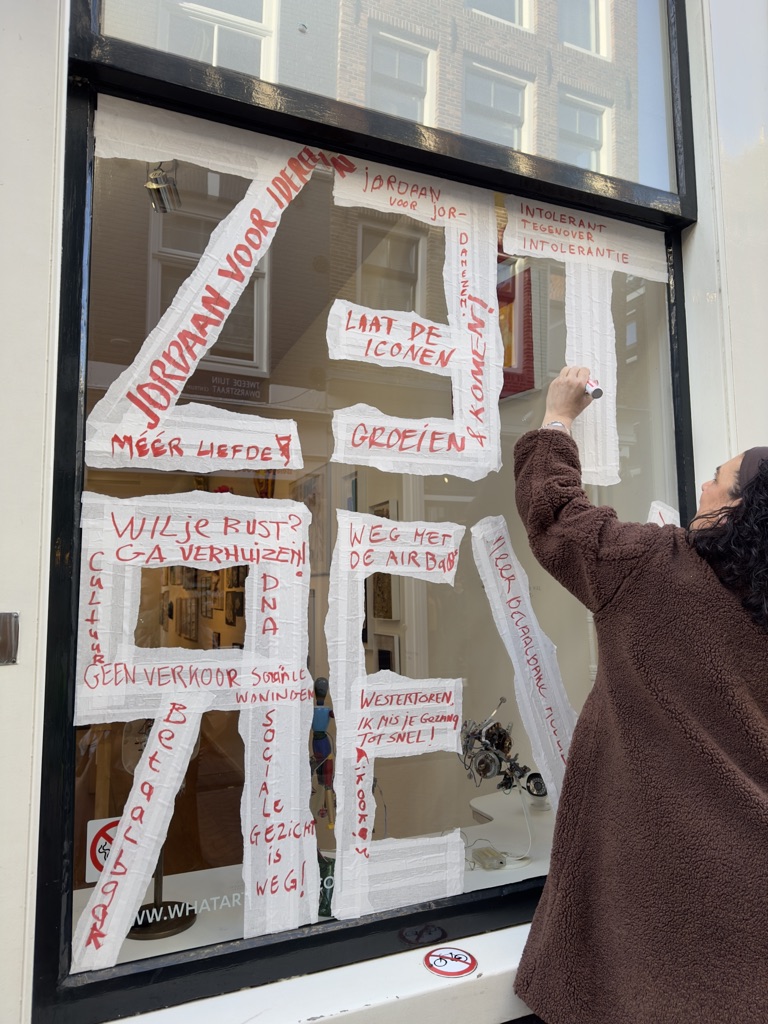 JORDAAN VOOR IEDEREEN
MÉÉR LIEFDE
JORDAAN
VOOR JOR-
DANEZEN.
& KOMEN!
LAAT DE
ICONEN
GROEIEN
INTOLERANT
TEGENOVER
INTOLERANTIE
TWEEDE TUIN
DWARSSTRAAT
WIL JE RUST?
GA VERHUIZEN!
Cultuur
DNA
GEEN VERKOOR SOCiALE
WONINGEN
Betaalbaar
SOCIALE
GEZICHT
iS
WEG!
WEG MET
DE AIRB&B'S
WESTERTOREN,
IK MIS JE GEZANG
TOT SNEL!
IK OOK
Meer betaalbare
WWW.WHATART